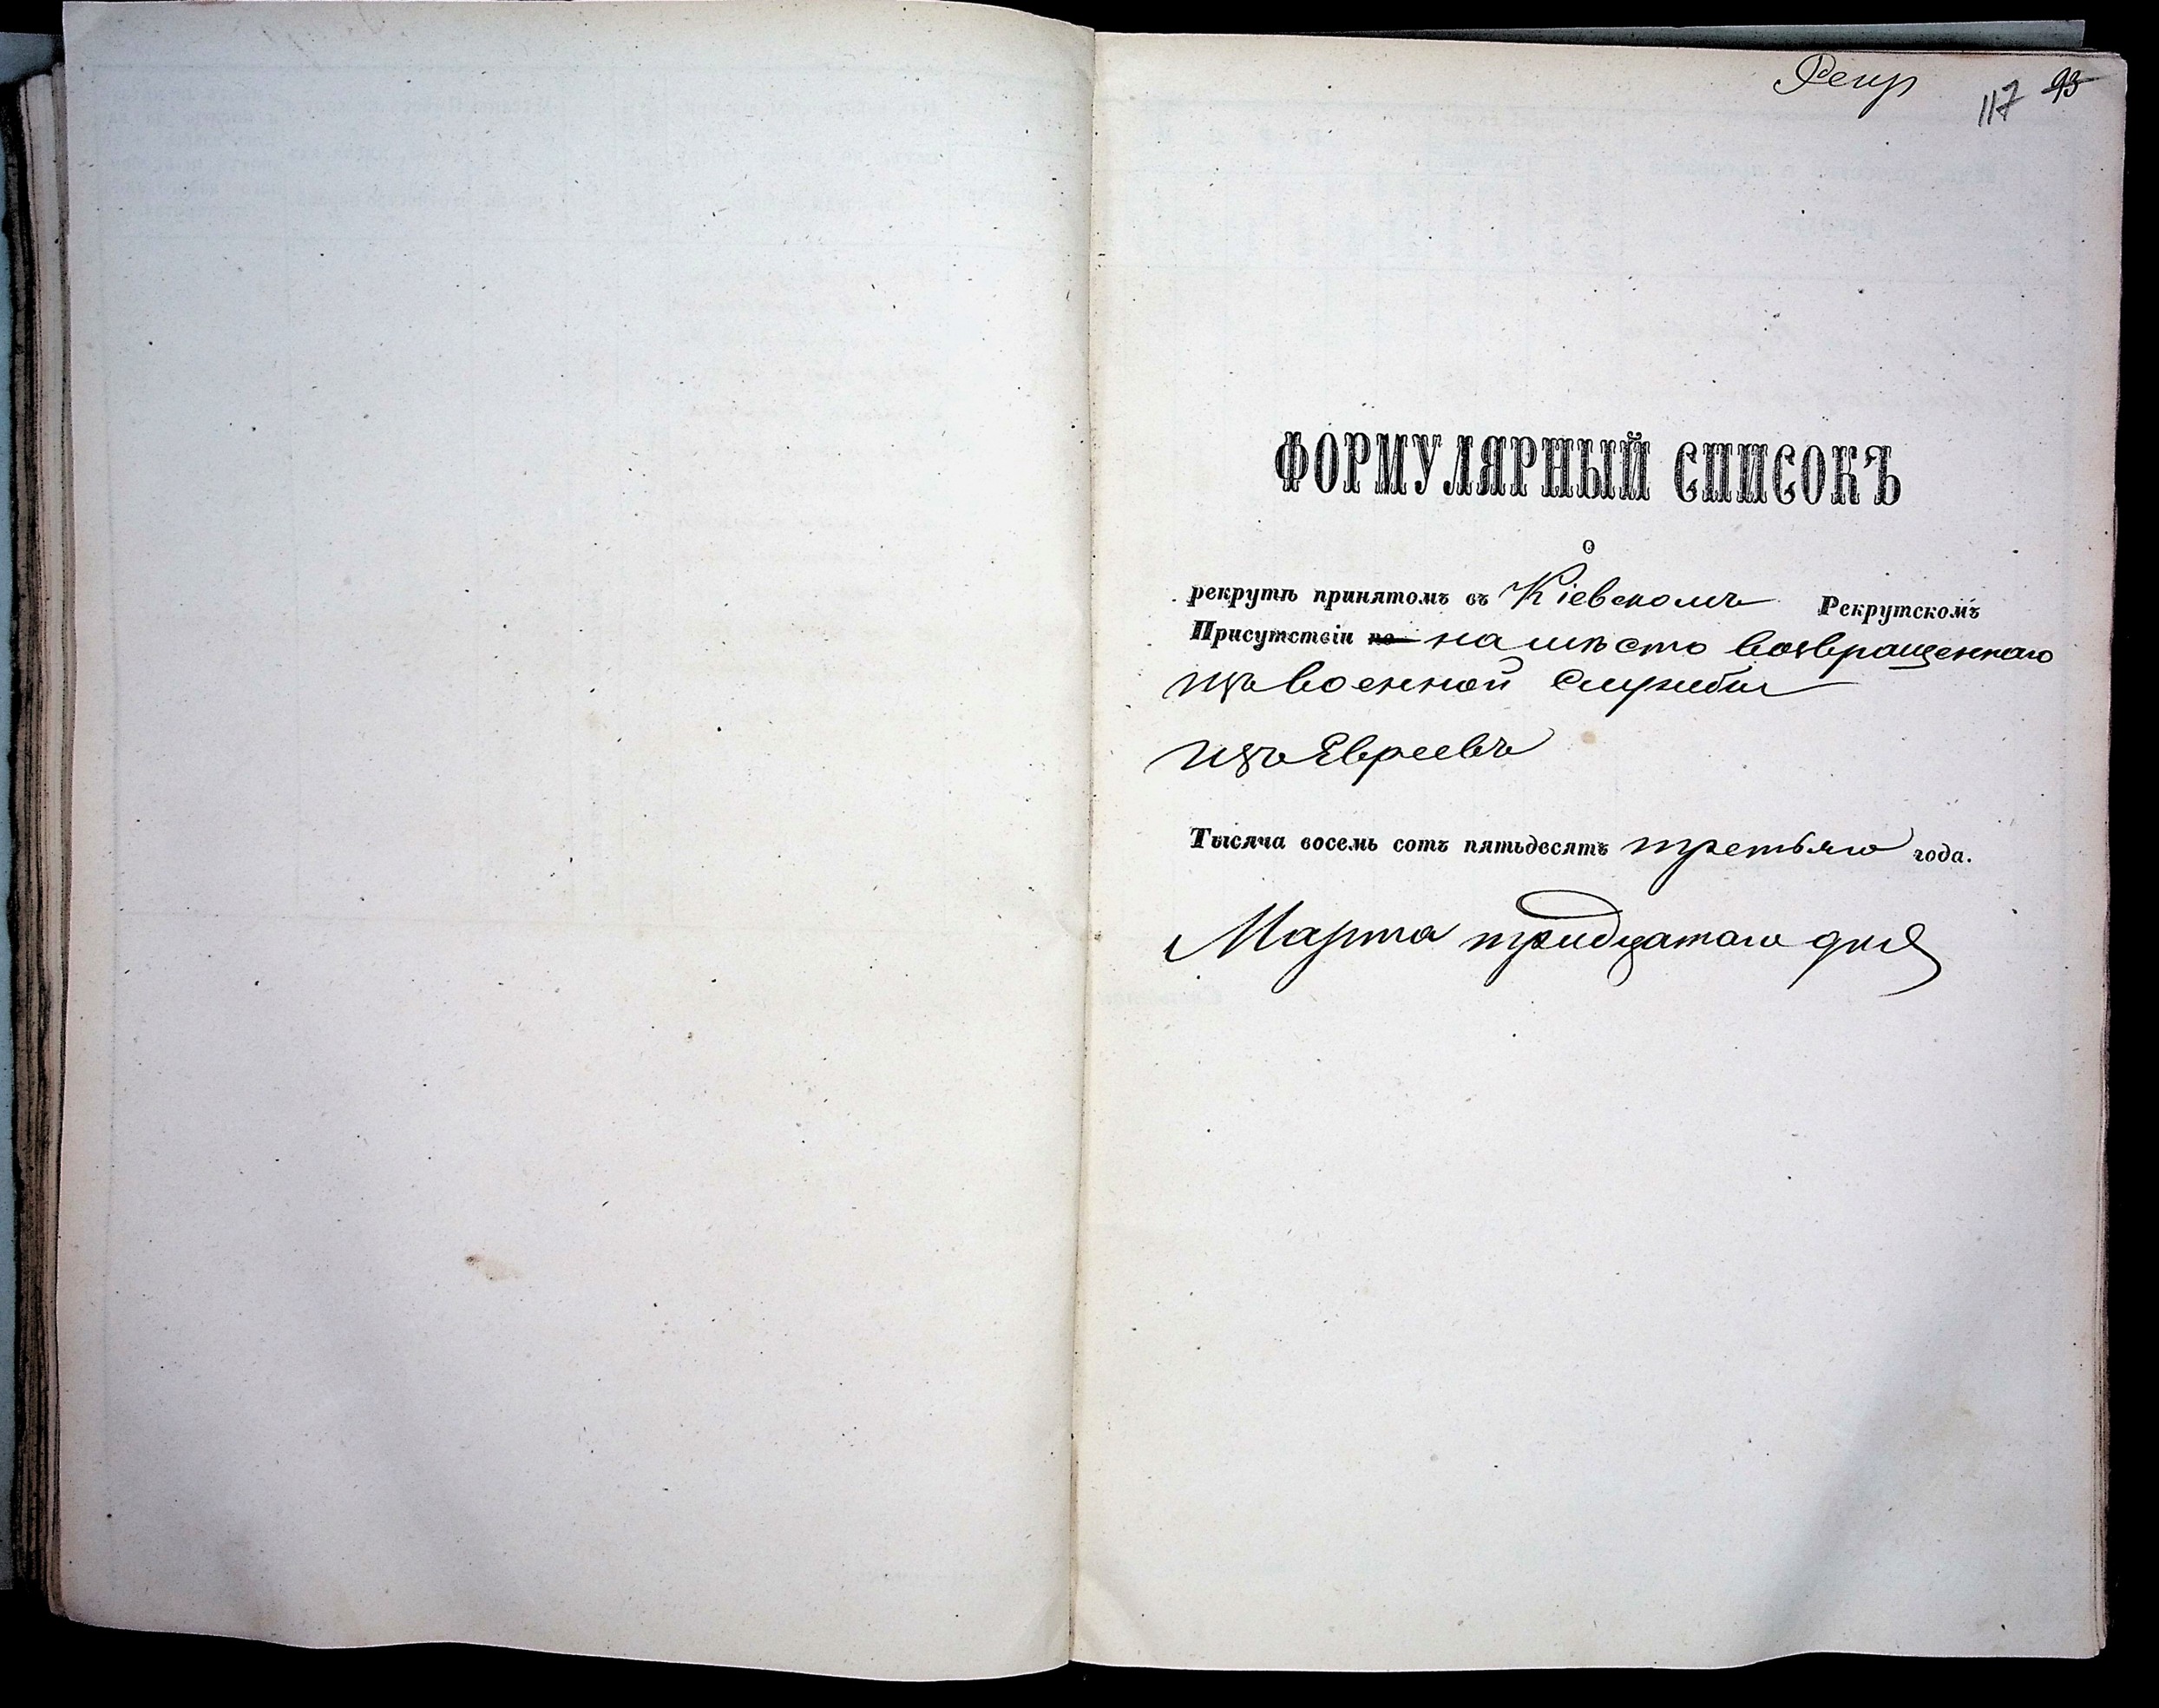 Рекр
117 93
ФОРМУЛЯРНЫЙ СПИСОКЪ
о
рекрутѣ принятомъ въ Кіевскомъ Рекрутскомъ
Присутствіи по на мѣсто возвращеннаго
изъ военной Службы
изъ Евреевъ
Тысяча восемь сотъ пятьдесятъ третьяго года.
Марта тридцатаго дня